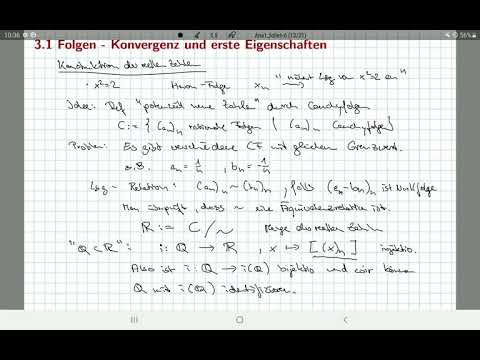 10:06
Ana1_folien-6 (12/21)
56%
3.1 Folgen - Konvergenz und erste Eigenschaften
Konstruktion der reellen Zahlen
· x²=2 Heron-Folge xₙ → "nähert Lsg von x²=2 an"
Idee: Def "potentiell neue Zahlen" durch Cauchyfolgen
C := { (aₙ)ₙ rationale Folgen | (aₙ)ₙ Cauchyfolge }
Problem: Es gibt verschiedene CF mit gleichem Grenzwert.
z.B. aₙ = 1/n, bₙ = -1/n
Relation: (aₙ)ₙ ~ (bₙ)ₙ, falls (aₙ-bₙ)ₙ ist Nullfolge
Man überprüft, dass ~ eine Äquivalenzrelation ist.
ℝ := C/~ Menge der reellen Zahlen
"ℚ ⊂ ℝ": i: ℚ → ℝ, x ↦ [(x)ₙ] injektiv.
Also ist i: ℚ → i(ℚ) bijektiv und wir können
ℚ mit i(ℚ) identifizieren.